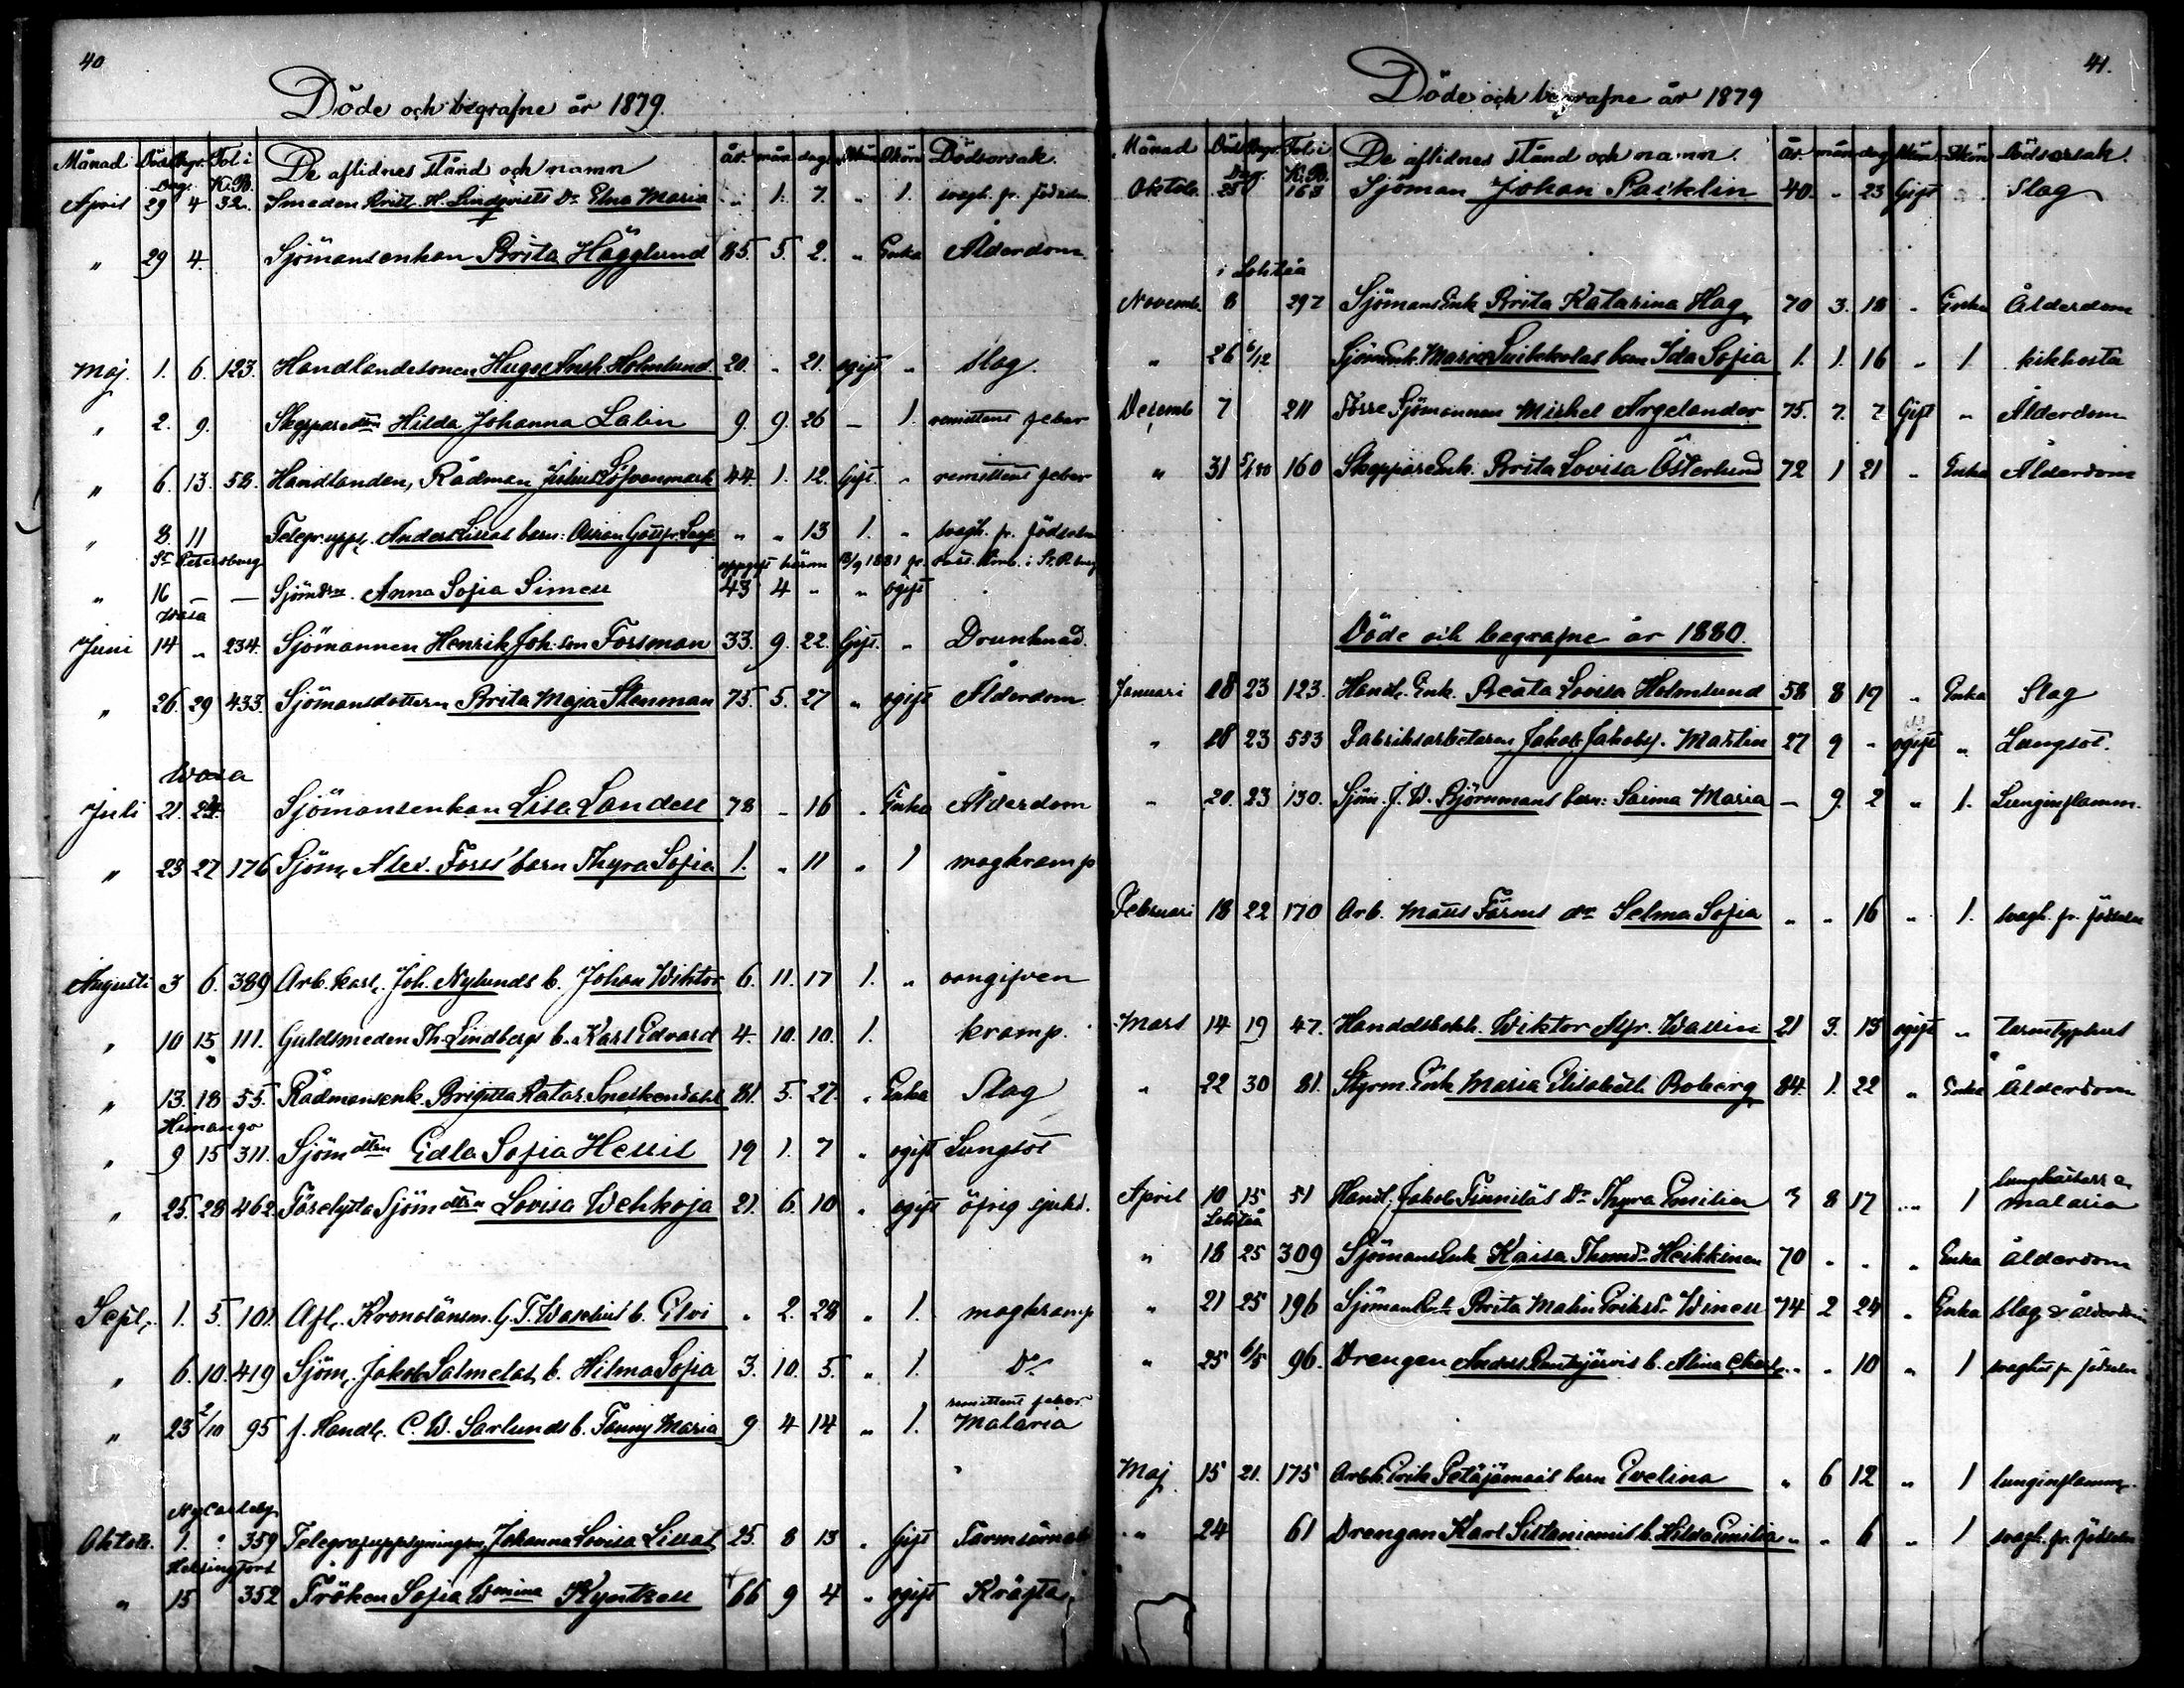 40
Döde och begrafne år 1879.
Månad Död Begr. Fol. i De aflidnes stånd och namn år mån dag. Mkön Qkön Dödsorsak
Dag. K.B.
April 29 4 32. Smeden H. Lindqvists Dr Elna Maria " 1. 7. " 1. svagh. fr. födseln
" 29 4. Sjömansenkan Brita Hägglund 85. 5. 2. " Enka Ålderdom
Maj. 1. 6. 123. Handlandesonen Hugo Holmlund 20. " 21. ogift " Slag.
" 2. 9. Skeppare dttrn Hilda Johanna Labin 9. 9. 26 - 1. remittent feber
" 6. 13. 58. Handlanden, Rådman Julius Löfvenmark 44. 1. 12. Gift. " remittent feber
" 8. 11 Telegr. uppl. Anders Lissas barn: " " 13 1. " svagh. fr. födseln
St Petersburg
" 16 — — Sjömdtr. Anna Sofia Simell 43 4 " " ogift
Wasa
Juni 14 " 234. Sjömannen Henrik Joh. son Forsman 33. 9. 22. Gift. " Drunknad.
" 26. 29 433. Sjömansdottern Brita Maja Stenman 75. 5. 27 " ogift Ålderdom
Wasa
Juli 21. 24. Sjömansenkan Lisa Landell 78 - 16 " Enka Ålderdom
" 23 27 176 Sjöm. Alex. Forss' barn Thyra Sofia 1. " 11 " 1 magkramp
Augusti 3 6. 389 Arb. karl. Joh. Nylunds b. Johan Wiktor 6. 11. 17 1. " oangifven
" 10 15 111. Guldsmeden Th. Lindbergs b. Karl Edvard 4. 10. 10. 1. kramp.
" 13. 18 55. Rådmansenk. Brigitta Katar. Sneckendahl 81. 5. 27. " Enka Slag
Himango
" 9 15 311. Sjöm dttrn Edla Sofia Hellis 19 1. 7 " ogift Lungsot
" 25. 28 462. Förelysta Sjöm dttrn Lovisa Wehkoja 21. 6. 10 " ogift öfrig sjukd.
Sept. 1. 5. 101. Afl. Kronolänsm. G. T. b. Elvi " 2. 28 " 1. magkramp
" 6. 10. 419 Sjöm. Jakob Salmelas b. Hilma Sofia 3. 10. 5. " 1. Do
remittent feber
" 23 2/10 95 f. Handl. C. W. Sarlunds b. Fanny Maria 9 4 14 " 1. Malaria
Nycarleby
Oktob. 1. " 359 Johanna Lovisa Lissas 25. 8 13 " Gift
Helsingfors
" 15 352 Fröken Sofia Wmina Kyntzell 66 9 4 " ogift Kräfta
41.
Döde och begrafne år 1879
Månad Död Begr. Fol. i De aflidnes stånd och namn. år. mån dag Mkön Qkön Dödsorsak.
Dag. K.B.
Oktob. 25 163 Sjöman Johan Packlin 40. " 23 Gift " Slag
i Lohteå
Novemb. 8 297 Sjömans Enk. Brita Katarina Hag 70 3. 18 " Enka Ålderdom
" 26 6/12 Maria barn Ida Sofia 1. 1. 16 " 1 kikhosta
Decemb 7 211 Förre Sjömannen Mickel Argelander 75. 7. 7 Gift " Ålderdom
" 31 5/1 80 160 Skeppare Enk. Brita Lovisa Österlund 72 1 21 " Enka Ålderdom
Döde och begrafne år 1880.
Januari 18 23 123. Handl. Enk. Beata Lovisa Holmlund 58 8 19 " Enka Slag
" 18 23 553 Fabriksarbetaren Jakob Jakobs. Martin 27 9 - ogift " Lungsot.
" 20. 23 130. Sjöm. J. W. Björnmans barn: Saima Maria — 9. 2 " 1. Lunginflamm.
Februari 18 22 170 Arb. Matts Färms dr Selma Sofia " " 16 " 1. svagh. fr. födseln
Mars 14 19 47. Handelsbokh. Wiktor Alfr. Wallin 21 3. 13 ogift " tarmtyphus
" 22 30 81. Styrm. Enk Maria Elisabeth Boberg 84. 1. 22 " Enka Ålderdom
lungkatarr o.
April 10 15 51 Handl. Jakob Finniläs Dr Thyra Emilia 3 8 17 " 1 malaria
Lohteå
" 18 25 309 Sjömans Enk Kaisa Thomdr Heikkinen 70 " " " Enka Ålderdom
" 21 25 196 Sjömans Enk Brita Malin Eriksdr Winell 74 2 24 " Enka slag & ålderdom
" 25 6/5 96. Drengen Anders b. Alina " " 10 " 1 svaghet fr. födseln
Maj 15 21. 175 Arbk. Erik Petäjämaas barn Evelina " 6 12 " 1 lunginflamm.
" 24 61 Drengen Karl b. Hilda Emilia " " 6 " 1 svagh. fr. födseln